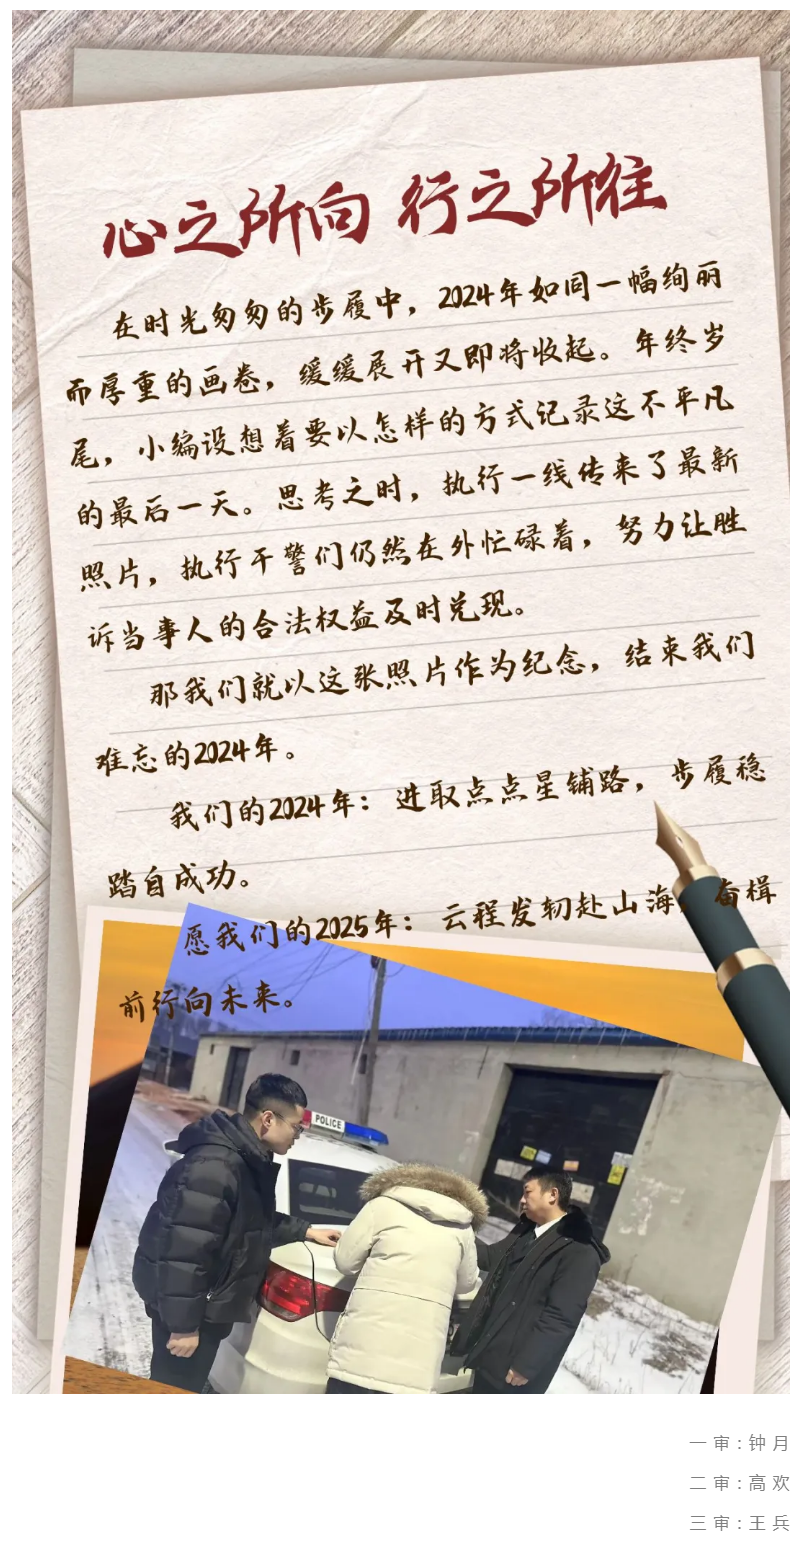 心之所向 行之所往
在时光匆匆的步履中，2024年如同一幅绚丽
而厚重的画卷，缓缓展开又即将收起。年终岁
尾，小编设想着要以怎样的方式记录这不平凡
的最后一天。思考之时，执行一线传来了最新
照片，执行干警们仍然在外忙碌着，努力让胜
诉当事人的合法权益及时兑现。
那我们就以这张照片作为纪念，结束我们
难忘的2024年。
我们的2024年：进取点点星铺路，步履稳
踏自成功。
愿我们的2025年：云程发轫赴山海，奋楫
前行向未来。
POLICE
一审:钟月
二审:高欢
三审:王兵